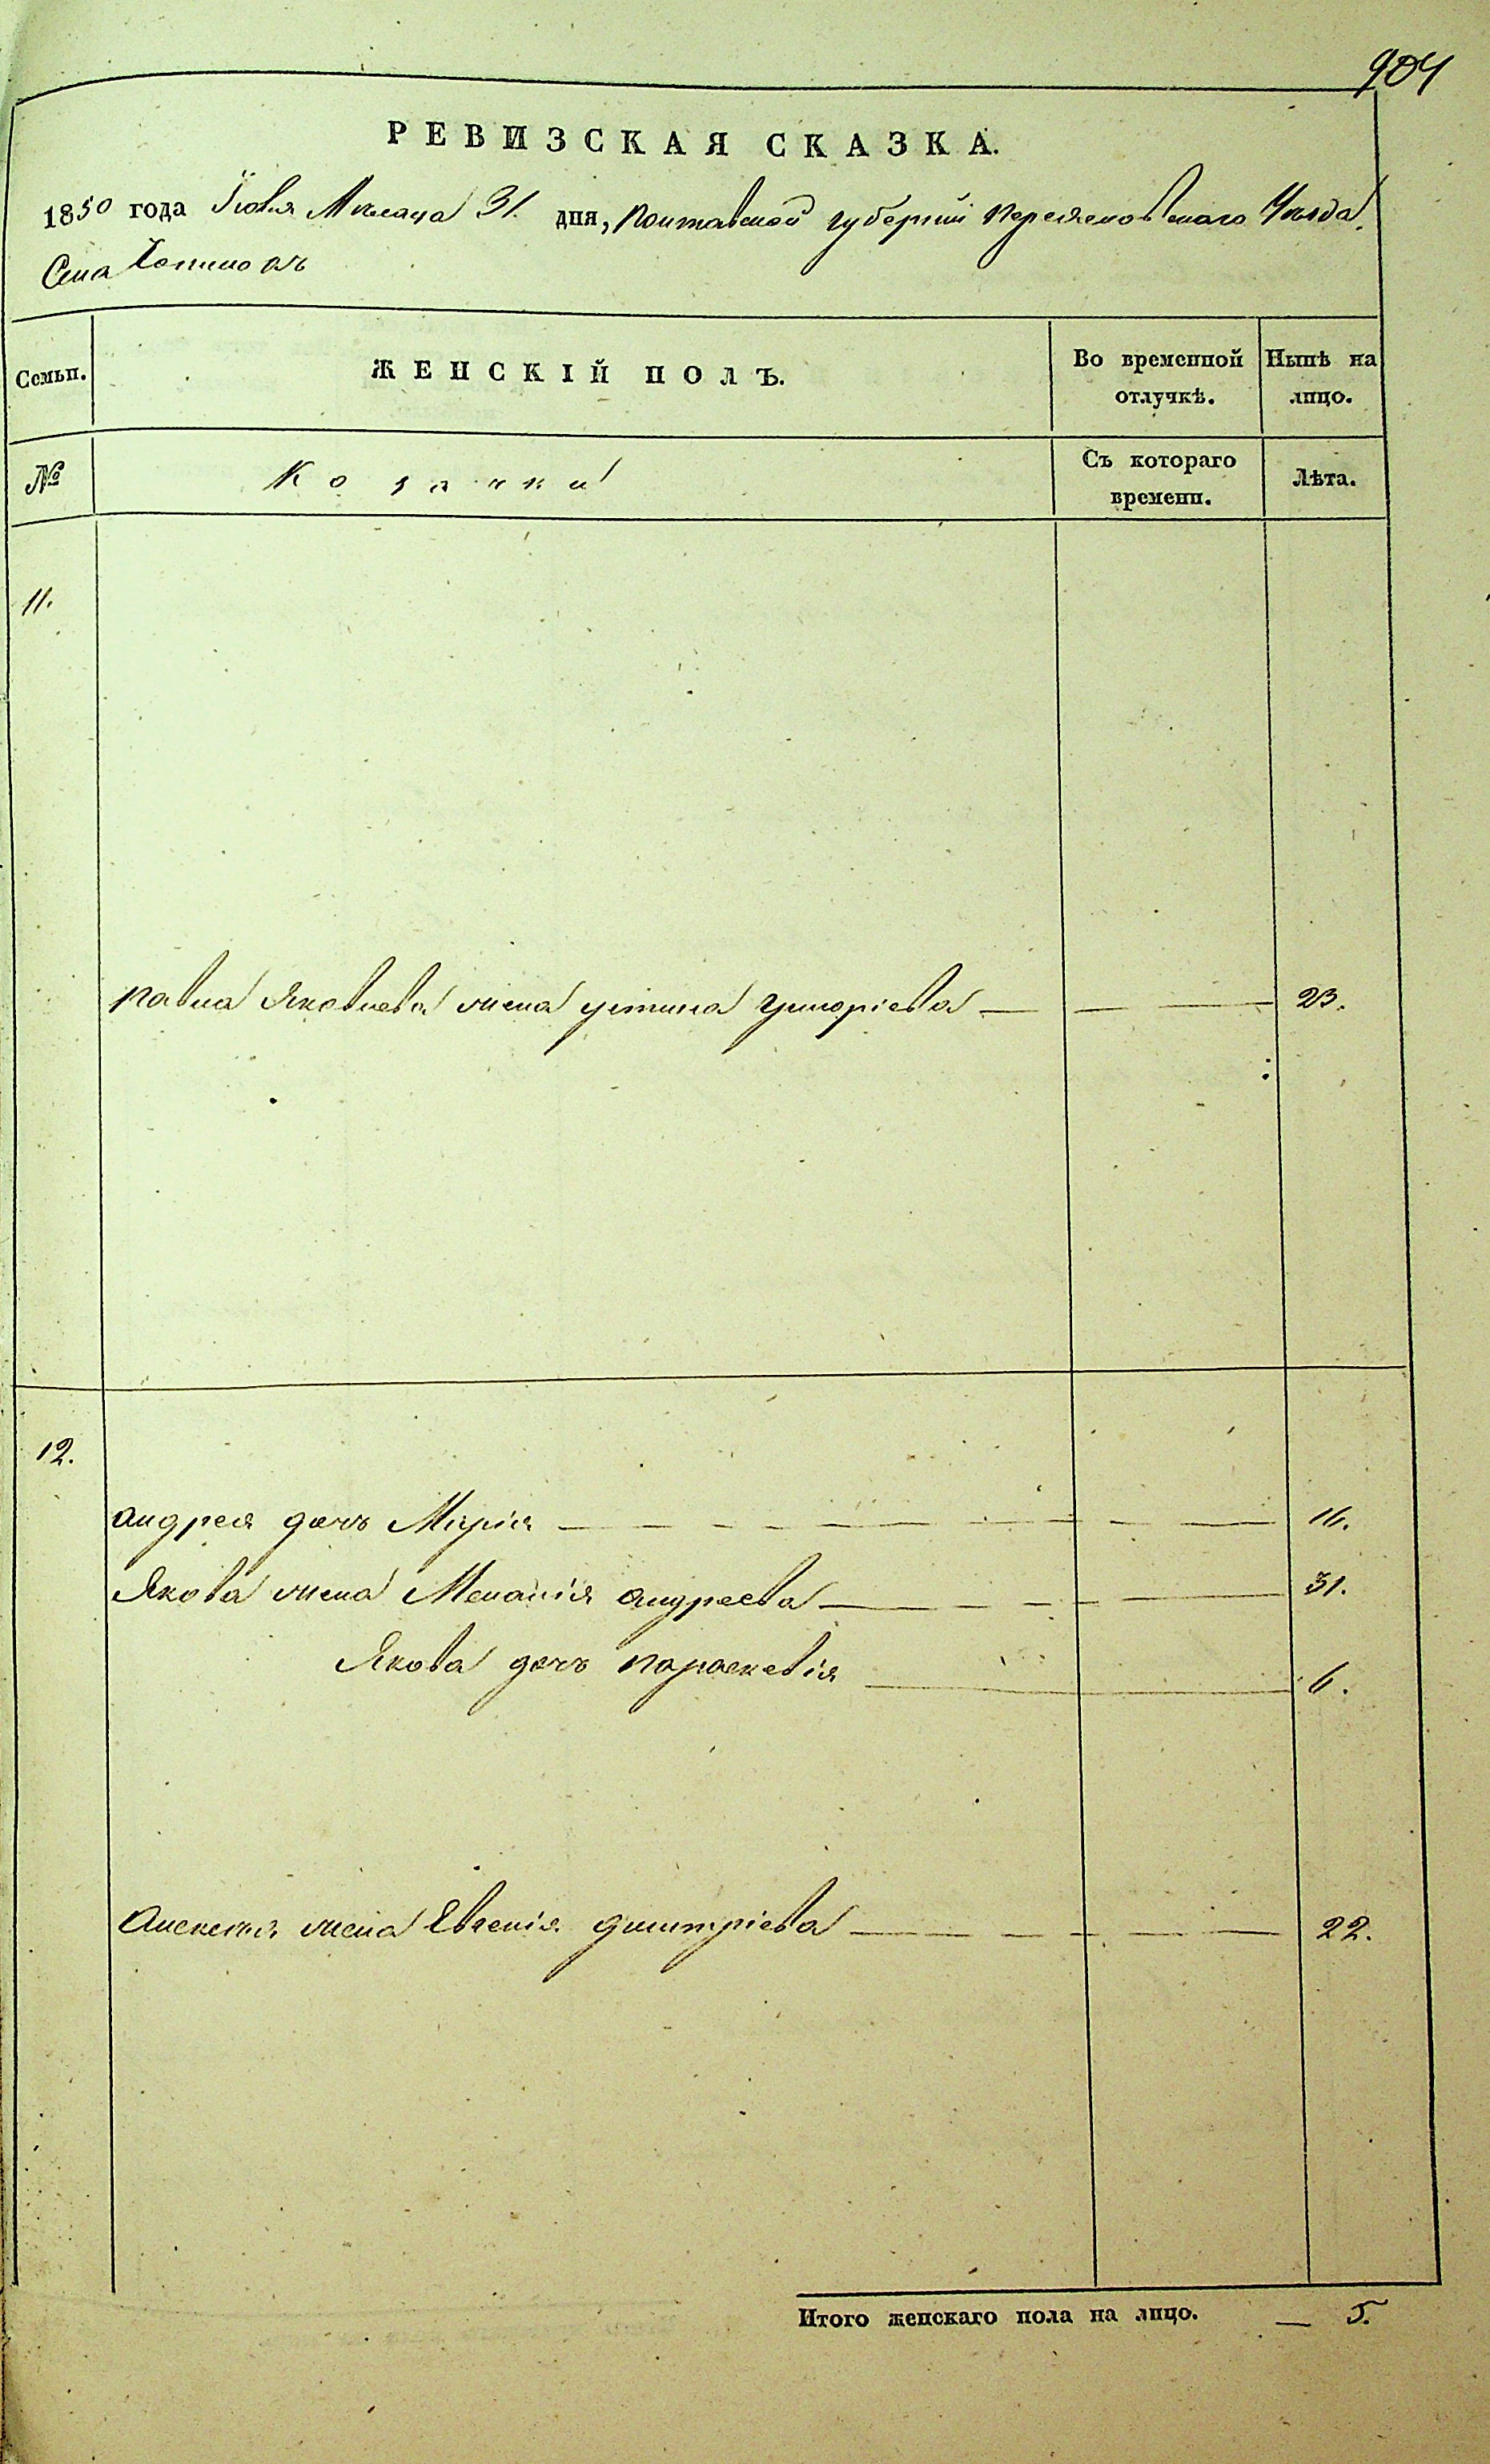 904
РЕВИЗСКАЯ СКАЗКА.
1850 года Іюля Месяца 31. дня, Полтавской губерніи Переяславскаго Уезда.
Села Хоцмокъ
Семьи. ЖЕНСКІЙ ПОЛЪ. Во временной отлучкѣ. Нынѣ на лицо.
№ Козачки Съ котораго времени. Лѣта.
11.
Павла Яковлева жена устина григоріева 23.
12.
андрея дочь Марія 16.
Якова жена Меланія андреева 31.
Якова дочь параскевія 6.
Алексея жена Евгенія дмитріева 22.
Итого женскаго пола на лицо. — 5.